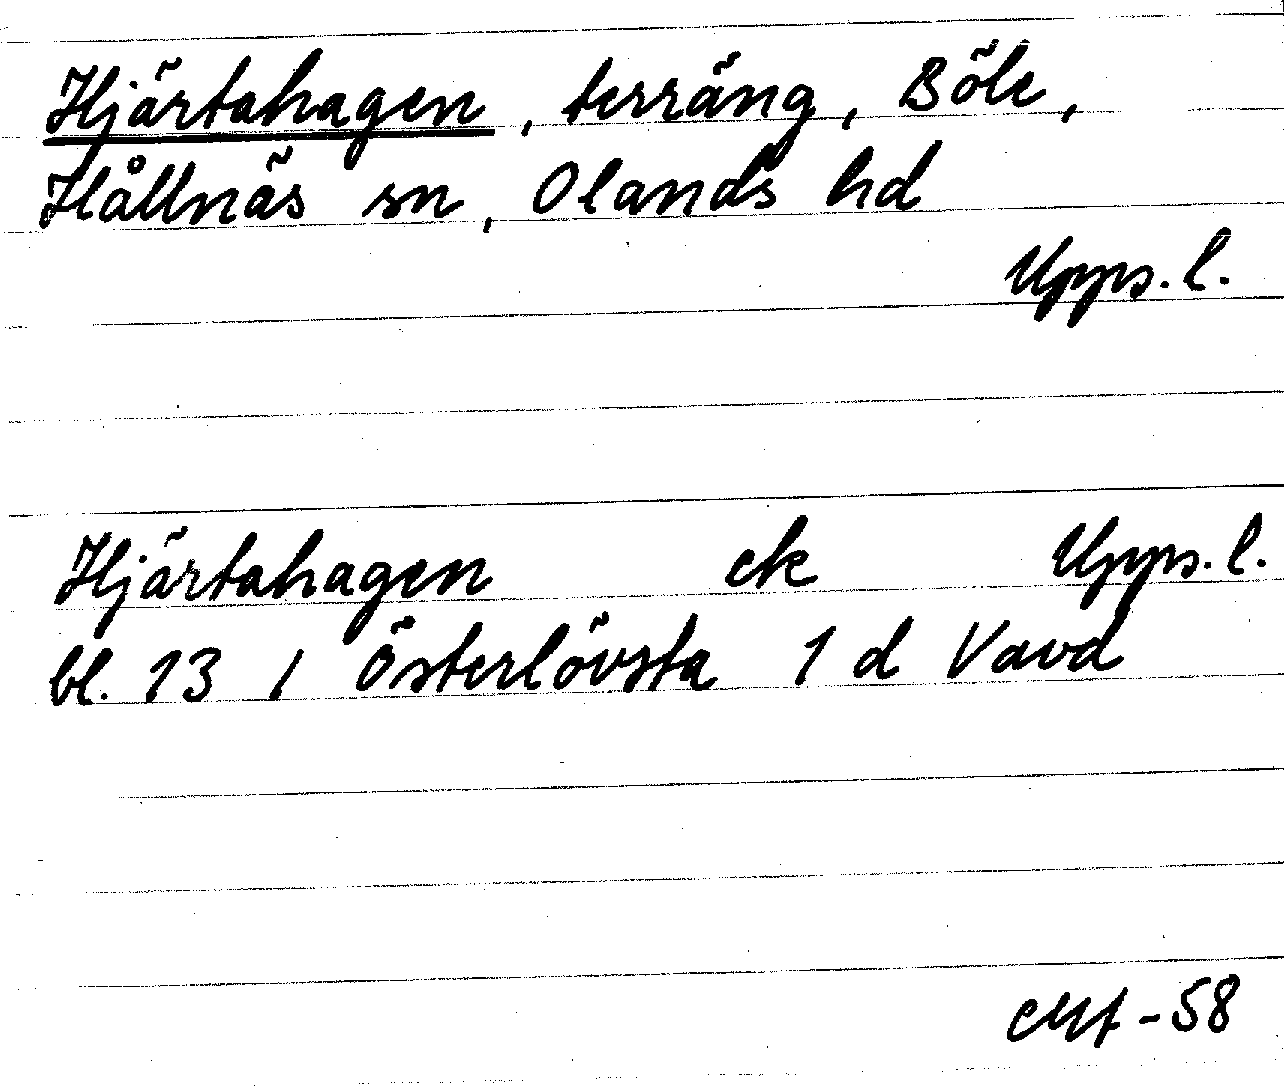 Hjärtahagen, terräng, Böle,
Hållnäs sn, Olands hd
Upps. l.
Hjärtahagen ek Upps. l.
bl. 13 I Österlövsta 1 d Vavd
-58